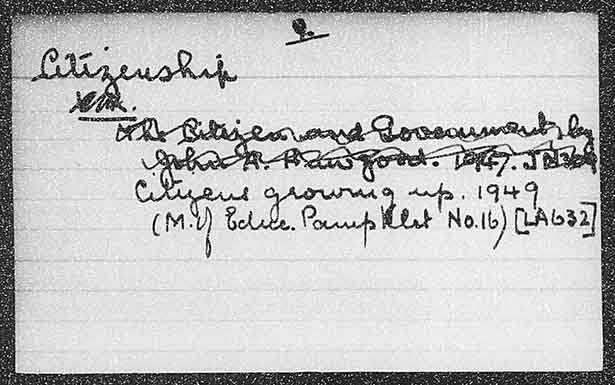 9.
Citizenship
The Citizen and Government by
John A. Hawgood. 1947. JN309
Citizens growing up. 1949
(M. of Educ. Pamphlet No.16) [LA632]